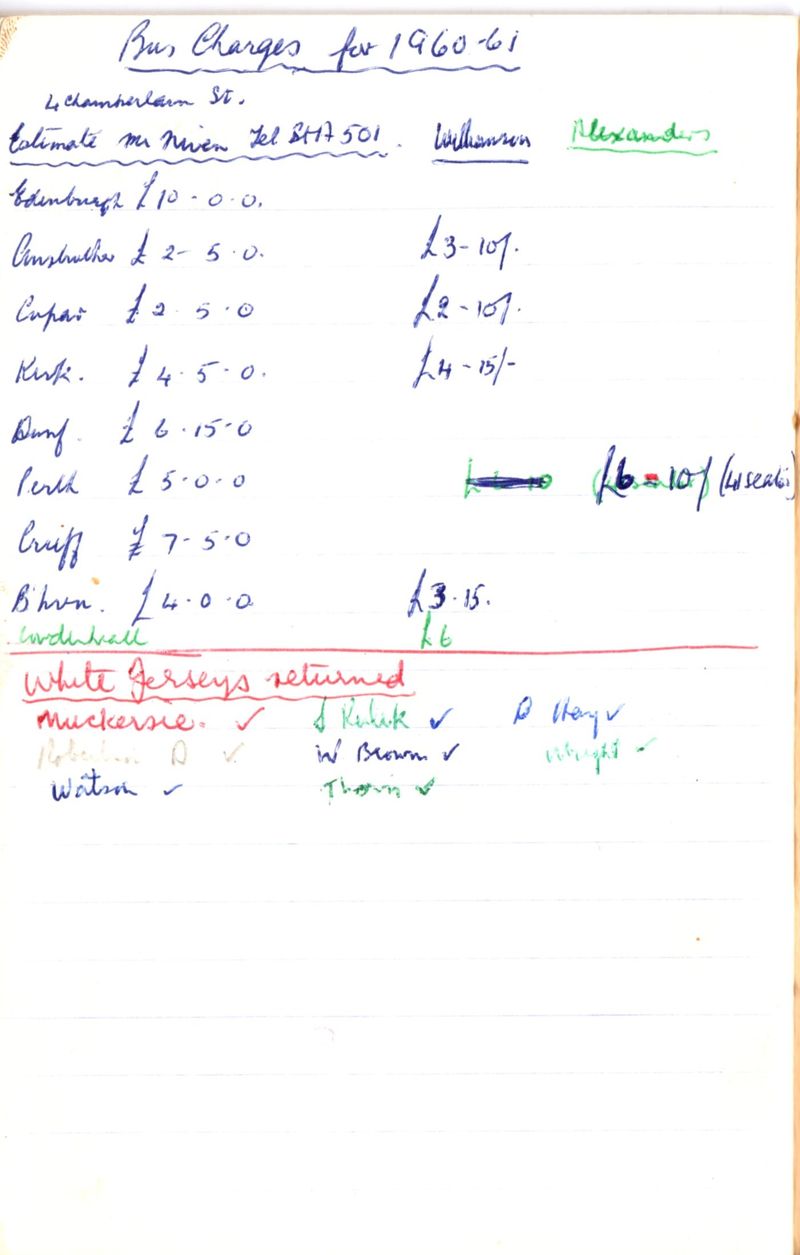 Bus Charges for 1960-61
4 Chamberlain St.
Estimate Mr Niven Tel STA 501. Williamson Alexanders
Edinburgh £10-0-0.
Anstruther £2-5-0. £3-10/-
Cupar £2-5-0 £2-10/-
Kirk. £4-5-0. £4-15/-
Dunf. £6-15-0
Perth £5-0-0 £6-10/ (41 seater)
Crieff £7-5-0
B'hven. £4-0-0 £3-15.
£6
White Jerseys returned
Muckersie. ✓ ✓ D Hay ✓
Robertson D ✓ W Brown ✓ Wright ✓
Watson ✓ Thoms ✓